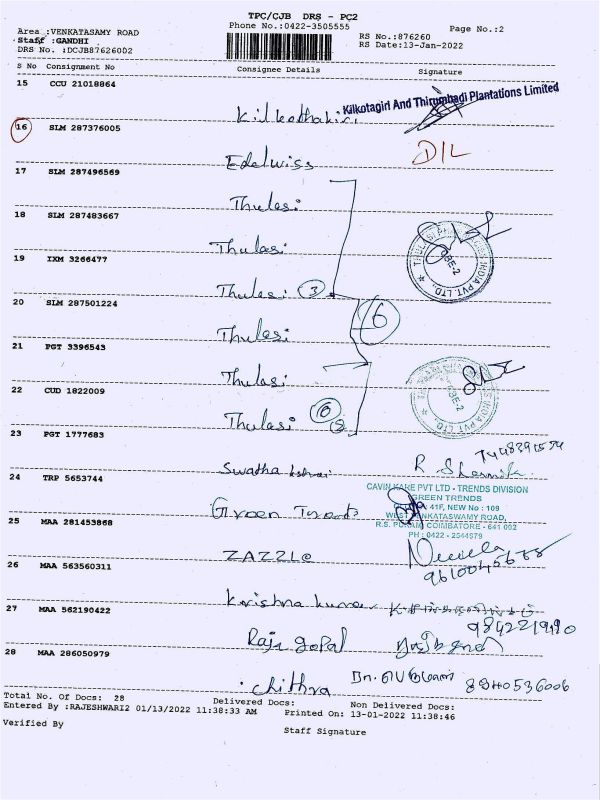 TPC/CJB DRS - PC2
Area :VENKATASAMY ROAD
Phone No.:0422-3505555
Page No.:2
Staff :GANDHI
RS No.:876260
DRS No. :DCJB87626OD2
RS Date:13-Jan-2022
S No Consignment No Consignee Details Signature
15 CCU 21018864
Kilkothakiri
Kilkotagiri And Thirumbadi Plantations Limited
16 SLM 287376005
Edelwiss D/L
17 SLM 287496569
Thulasi
18 SLM 287483667
Thulasi
19 IXM 3266477
Thulasi 3
20 SLM 287501224
Thulasi 6
21 PGT 3396543
Thulasi
22 CUD 1822009
Thulasi
CBE-2
23 PGT 1777683
24 TRP 5653744
CAVIN KARE PVT LTD - TRENDS DIVISION
GREEN TRENDS
41F, NEW No : 109
WEST VENKATASWAMY ROAD,
R.S. PURAM, COIMBATORE - 641 002
PH : 0422 - 2544579
Green Trends
25 MAA 281453868
ZAZZle
26 MAA 563560311
Krishna kumar
27 MAA 562190422
Raja gopal
28 MAA 286050979
Chithra
Total No. Of Docs: 28 Delivered Docs: Non Delivered Docs:
Entered By :RAJESHWARI2 01/13/2022 11:38:33 AM Printed On: 13-01-2022 11:38:46
Verified By
Staff Signature